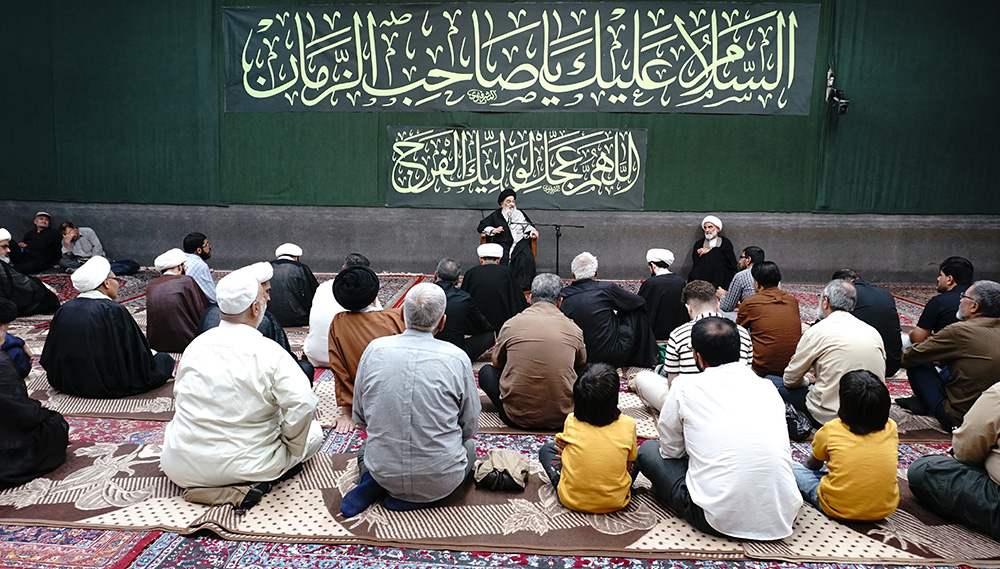 السَّلامُ عَلَيْكَ يَا صَاحِبَ الزَّمَانِ
اللَّهُمَّ عَجِّلْ لِوَلِيِّكَ الْفَرَجَ